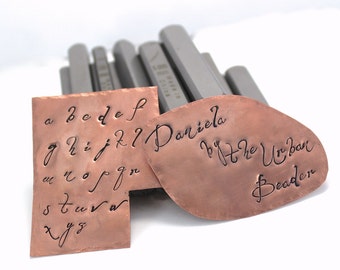 a b c d e f
g h i j k l
m n o p q r
s t u v w
x y z
Daniela
by the Urban
Beader